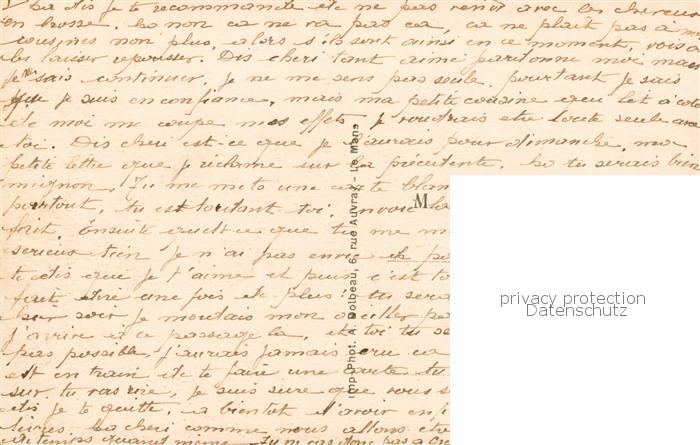 dis je te recommande de ne pas venir avec les cheveux
en brosse. ho non ca ne va pas ca, ca ne plait pas à
cousines non plus, alors s'ils sont ainsi en ce moment,
les laisser repousser. Dis cheri tant aimé pardonne moi mais
je vais continuer, je ne me sens pas seule. pourtant je sais
que je suis en confiance, mais ma petite cousine qui lit à côté
de moi me coupe mes effets je voudrais etre toute seule avec
toi. Dis cheri est-ce que je l'aurais pour dimanche, ma
petite lettre que je réclame sur la précédente. ho tu serais bien
mignon. Tu me mets une carte blan
partout, tu es toutant toi, envoie la
fait. Ensuite qu'est-ce que tu me m
serieux tien je n'ai pas envie de
te dis que je t'aime et puis c'est to
faut dire une fois de plus! tu sera
sur soir je mordais mon oreiller pa
j'arrive à ce passage la, et toi tu se
pas possible, j'aurais jamais cru ca
est en train de te faire une carte tu
sur. tu vas rire, je suis sure que vous s
dis je te quitte. à bientot d'avoir en
livres. ho cheri comme nous allons etre
du temps quand même. Tu n'as donc pas à
Imp. Phot. A. Dolbeau, 6, rue Auvray, - Le Mans
M
privacy protection
Datenschutz